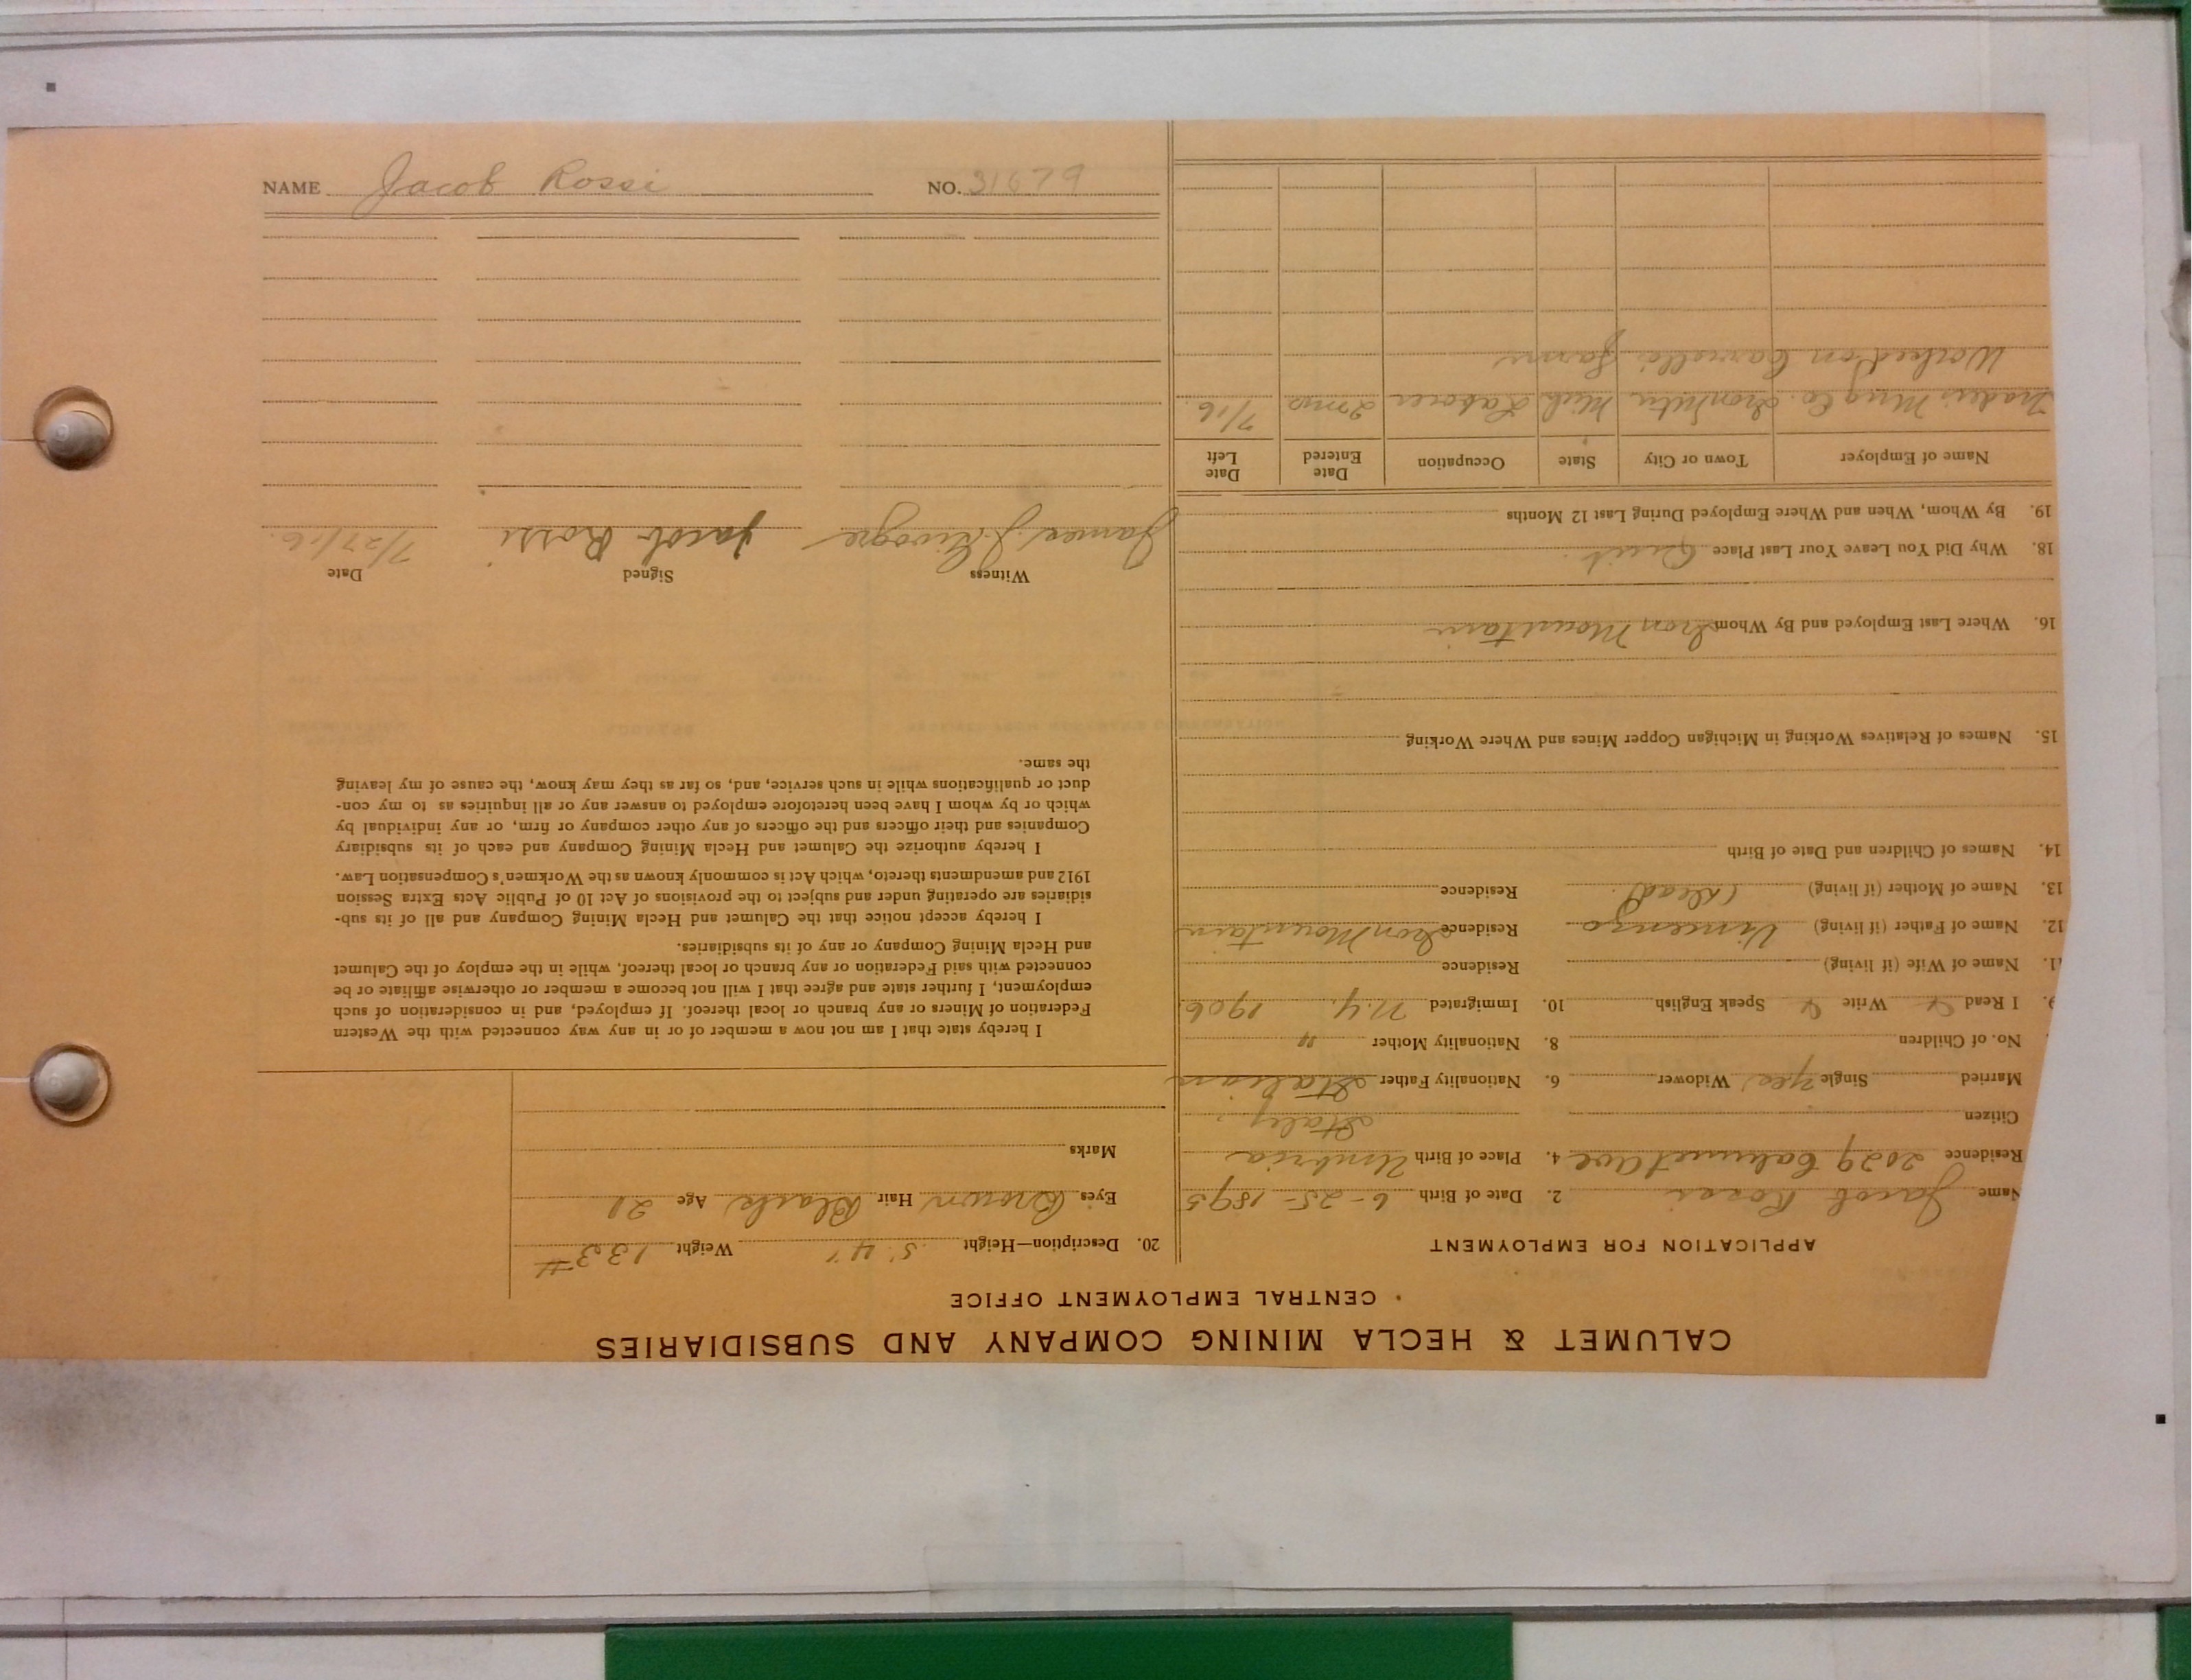 CALUMET & HECLA MINING COMPANY AND SUBSIDIARIES
CENTRAL EMPLOYMENT OFFICE
APPLICATION FOR EMPLOYMENT
Name Jacob Rossi 2. Date of Birth 6-25-1895
Residence 2029 Calumet Ave 4. Place of Birth Umbria
Citizen Italy
Married Single Yes Widower 6. Nationality Father Italian
No. of Children 8. Nationality Mother "
9. I Read Write Speak English 10. Immigrated N.Y. 1906
11. Name of Wife (if living) Residence
12. Name of Father (if living) Vincenzo Residence Iron Mountain
13. Name of Mother (if living) (Dead) Residence
14. Names of Children and Date of Birth
15. Names of Relatives Working in Michigan Copper Mines and Where Working
16. Where Last Employed and By Whom Iron Mountain
18. Why Did You Leave Your Last Place Quit
19. By Whom, When and Where Employed During Last 12 Months
Name of Employer Town or City State Occupation Date Entered Date Left
Mng Co. Mich Laborer 2 mos 7/16.
Worked on Farm
20. Description—Height 5' 4" Weight 133 #
Eyes Brown Hair Black Age 21
Marks
I hereby state that I am not now a member of or in any way connected with the Western
Federation of Miners or any branch or local thereof. If employed, and in consideration of such
employment, I further state and agree that I will not become a member or otherwise affiliate or be
connected with said Federation or any branch or local thereof, while in the employ of the Calumet
and Hecla Mining Company or any of its subsidiaries.
I hereby accept notice that the Calumet and Hecla Mining Company and all of its sub-
sidiaries are operating under and subject to the provisions of Act 10 of Public Acts Extra Session
1912 and amendments thereto, which Act is commonly known as the Workmen's Compensation Law.
I hereby authorize the Calumet and Hecla Mining Company and each of its subsidiary
Companies and their officers and the officers of any other company or firm, or any individual by
which or by whom I have been heretofore employed to answer any or all inquiries as to my con-
duct or qualifications while in such service, and, so far as they may know, the cause of my leaving
the same.
Witness Signed Date
James J. Jacob Rossi 7/27/16.
NAME Jacob Rossi NO. 31679